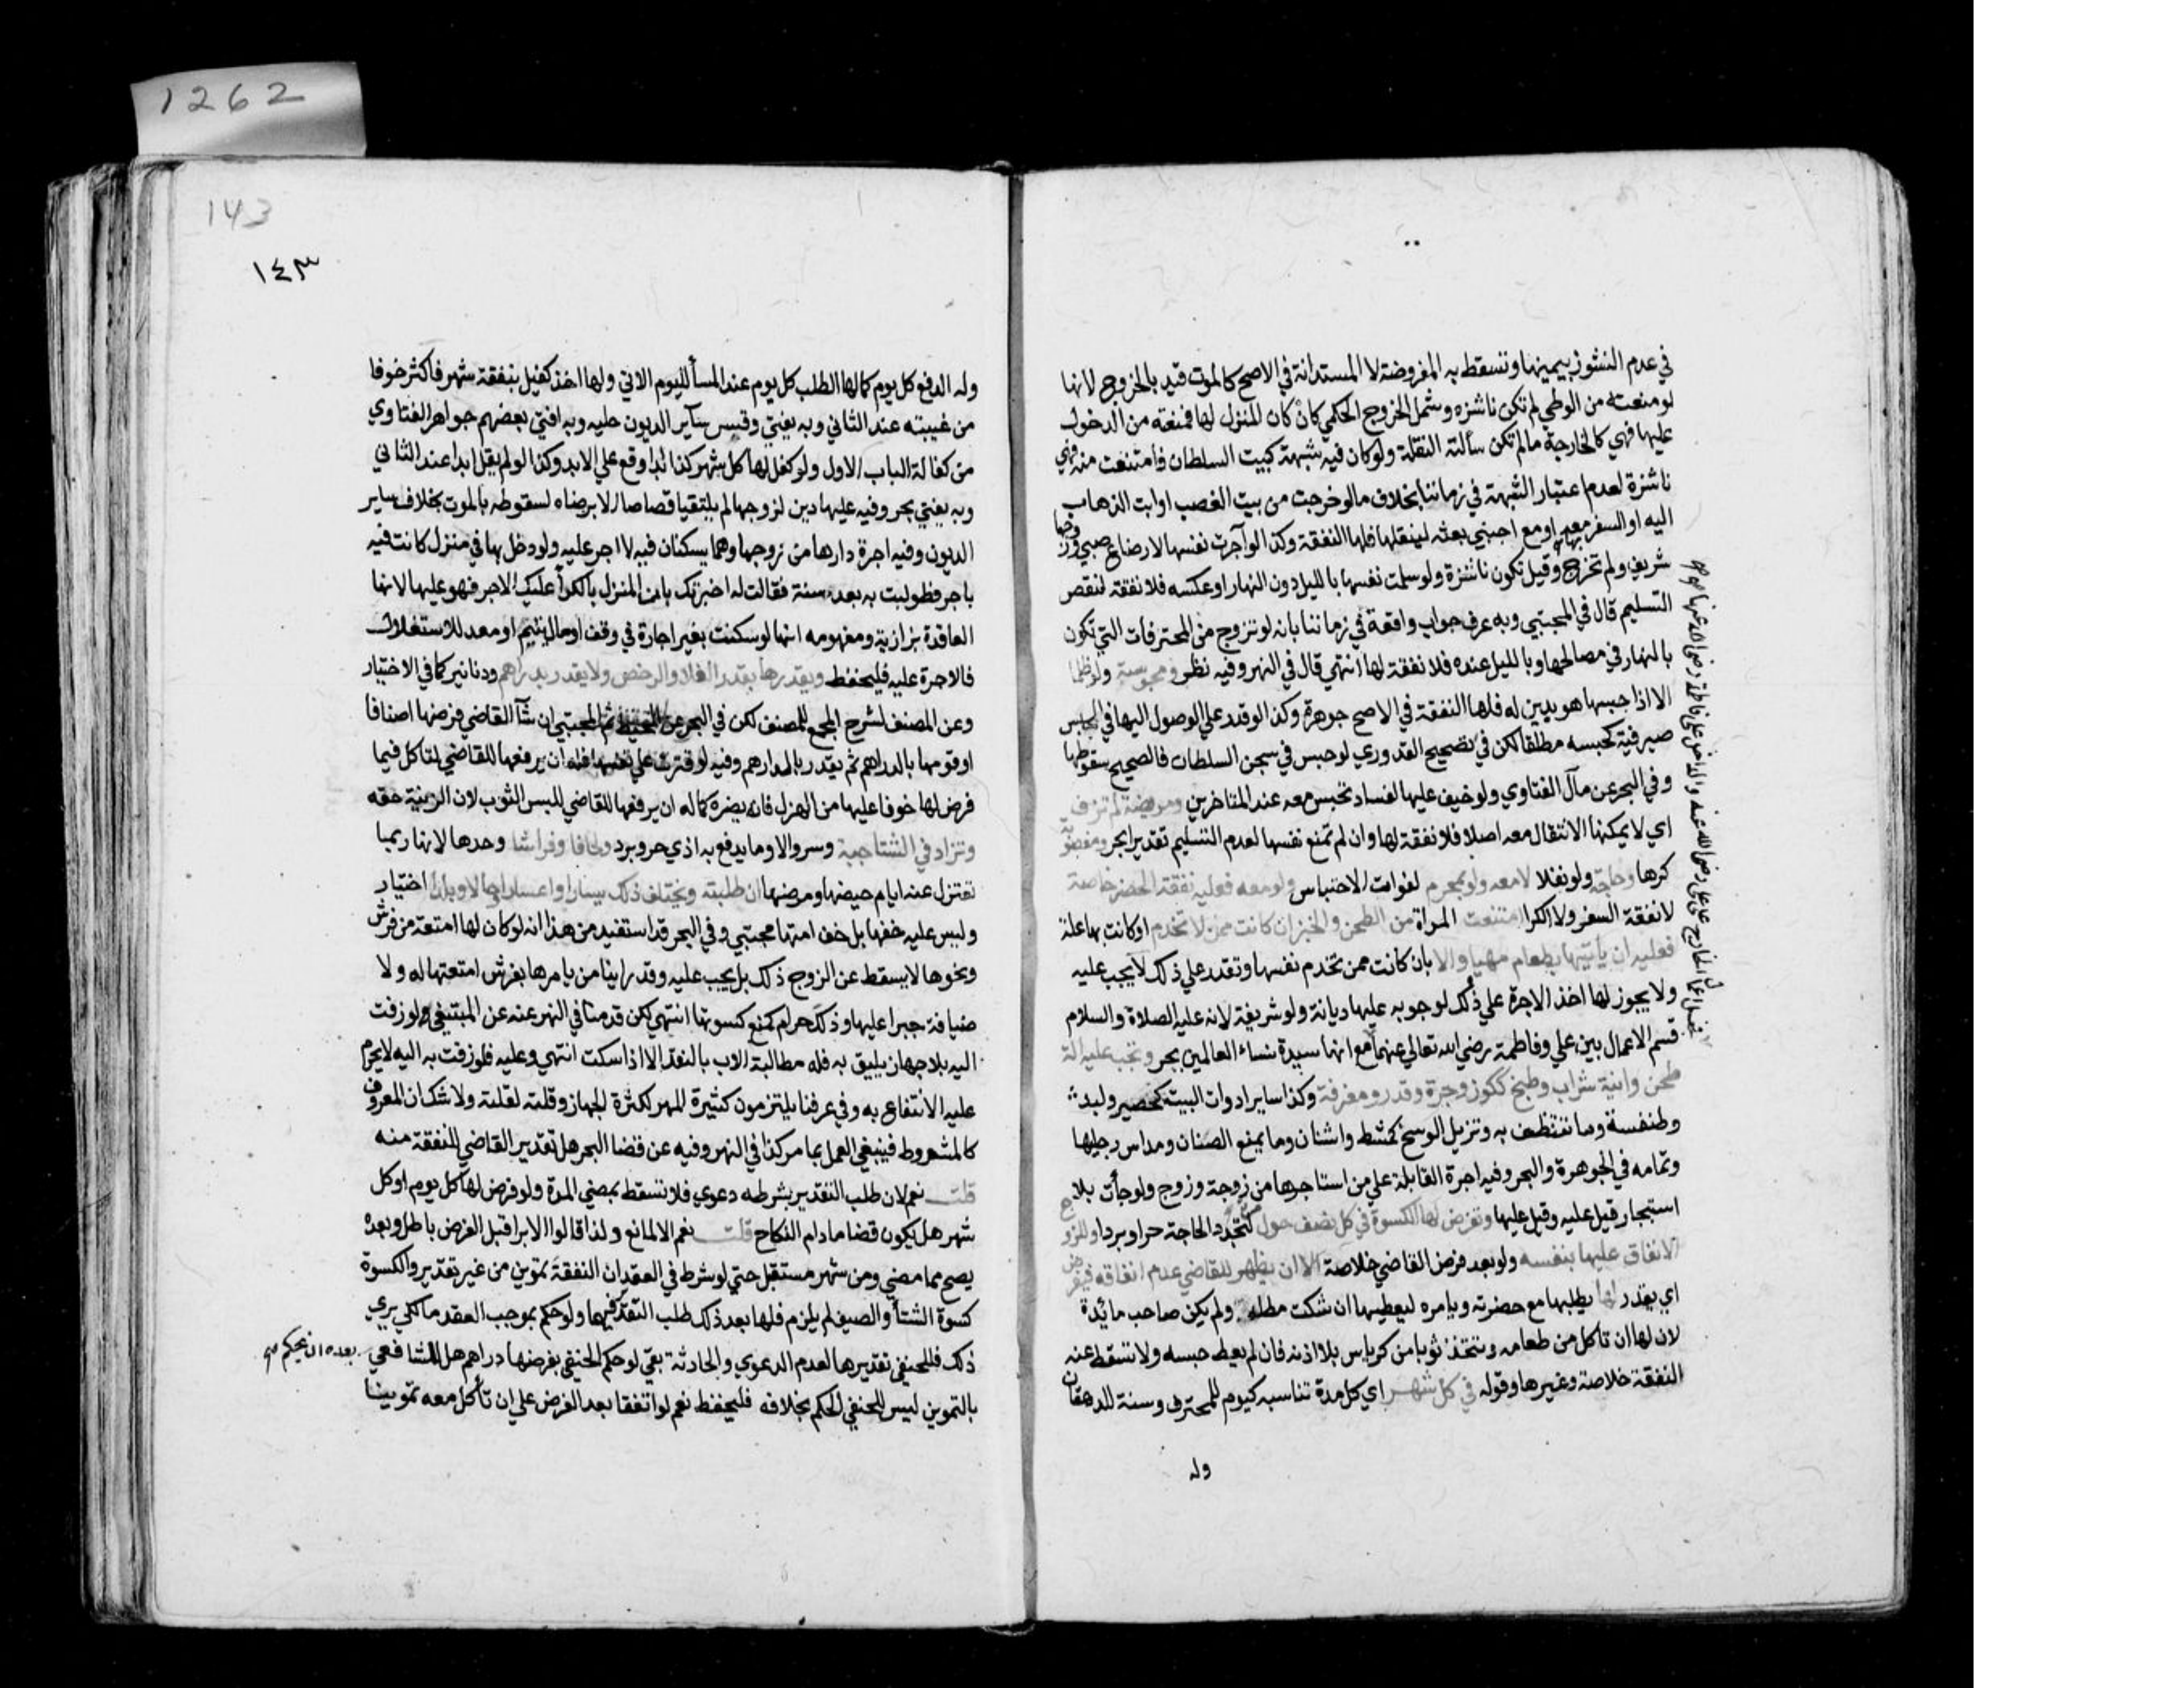 في عدم النشوز بيمينها وتسقط به المفروضة لا المستدانة في الاصح كالموت قيد بالخروج لانها
لو منعته من الوطي لم تكن ناشزه وشمل الخروج الحكمي كأن كان المنزل لها فمنعته من الدخول
عليها فهي كالخارجة مالم تكن سألته النقلة ولو كان فيه شبهة كبيت السلطان فامتنعت منه فهي
ناشزة لعدم اعتبار الشبهة في زماننا بخلاف مالو خرجت من بيت الغصب او ابت الذهاب
اليه او السفر معه او مع اجنبي بعثه لينقلها فلها النفقة وكذا لو آجرت نفسها لارضاع صبي وزوجها
شريف ولم تخرج وقيل تكون ناشزة ولو سلمت نفسها بالليل دون النهار او عكسه فلا نفقة لنقص
التسليم قال في المجتبي وبه عرف جواب واقعة في زماننا بانه لو تزوج من المحترفات التي تكون
بالنهار في مصالحها وبالليل عنده فلا نفقة لها انتهي قال في النهر وفيه نظر ومحبوسة ولو ظلما
الا اذا حبسها هو بدين له فلها النفقة في الاصح جوهرة وكذا لو قدر علي الوصول اليها في الحبس
صيرفية كحبسه مطلقا لكن في تصحيح القدوري لو حبس في سجن السلطان فالصحيح سقوطها
وفي البحر عن مآل الفتاوي ولو خيف عليها لفساد تحبس معه عند المتاخرين ومريضة لم تزف
اي لا يمكنها الانتقال معه اصلا فلا نفقة لها وان لم تمنع نفسها لعدم التسليم تقديرا بحر ومغصوبة
كرها وحاجة ولو نفلا لا معه ولو بمحرم لفوات الاحتباس ولو معه فعليه نفقة الحضر خاصة
لا نفقة السفر ولا الكرا امتنعت المراة من الطحن والخبز ان كانت ممن لا تخدم او كانت بها علة
فعليه ان يأتيها بطعام مهيا والا بان كانت ممن تخدم نفسها وتقدر علي ذلك لا يجب عليه
ولا يجوز لها اخذ الاجرة علي ذلك لوجوبه عليها ديانة ولو شريفة لانه عليه الصلاة والسلام
قسم الاعمال بين علي وفاطمة رضي الله تعالي عنهما مع انها سيدة نساء العالمين بحر ويجب عليه الة
طحن وانية شراب وطبخ ككوز وجرة وقدر ومغرفة وكذا ساير ادوات البيت كحصير ولبد
وطنفسة وما تتنظف به وتزيل الوسخ كمشط واشنان وما يمنع الصنان ومداس رجليها
وتمامه في الجوهرة والبحر وفيه اجرة القابلة علي من استاجرها من زوجة وزوج ولو جأت بلا
استيجار قيل عليه وقيل عليها وتفرض لها الكسوة في كل نصف حول لتجدد الحاجة حرا وبردا وللزوج
الانفاق عليها بنفسه ولو بعد فرض القاضي خلاصة الا ان يظهر للقاضي عدم انفاقه فيفرض
اي يقدر لها بطلبها مع حضرته ويامره ليعطيها ان شكت مطله ولم يكن صاحب مائدة
لان لها ان تاكل من طعامه وتتخذ ثوبا من كرباس بلا اذنه فان لم يعط حبسه ولا تسقط عنه
النفقة خلاصة وغيرها وقوله في كل شهر اي كل مدة تناسبه كيوم للمحترف وسنة للدهقان
وله
1262
143
١٤٣
وله الدفع كل يوم كما لها الطلب كل يوم عند المسأ لليوم الاتي ولها اخذ كفيل بنفقة شهر فاكثر خوفا
من غيبته عند الثاني وبه يفتي وقيس ساير الديون عليه وبه افتي بعضهم جواهر الفتاوي
من كفالة الباب الاول ولو كفل لها كل شهر كذا ابدا وقع علي الابد وكذا لو لم يقل ابدا عند الثاني
وبه يفتي بحر وفيه عليها دين لزوجها لم يلتقيا قصاصا الا برضاه لسقوطه بالموت بخلاف ساير
الديون وفيه اجرة دارها من زوجها وهما يسكنان فيه لا اجر عليه ولو دخل بها في منزل كانت فيه
باجر فطولبت به بعد سنة فقالت له اخبرتك بان المنزل بالكرأ عليك الاجر فهو عليها لانها
العاقدة بزازية ومفهومه انها لو سكنت بغير اجارة في وقف او مال يتيم او معد للاستغلال
فالاجرة عليه فليحفظ ويقدرها بقدر الغلا والرخص ولا يقدر بدراهم ودنانير كما في الاختيار
وعن المصنف لشرح المجمع للمصنف لكن في البحر عن المحيط ثم المجتبي ان شآ القاضي فرضها اصنافا
او قومها بالدراهم ثم يقدر بالدراهم وفيه لو قترت علي نفسها فله ان يرفعها للقاضي لتاكل فيما
فرض لها خوفا عليها من الهزل فانه يضره كما له ان يرفعها للقاضي للبس الثوب لان الزينة حقه
وتزاد في الشتا جبة وسروالا وما يدفع به اذي حر وبرد ولحافا وفراشا وحدها لانها ربما
تعتزل عنه ايام حيضها ومرضها ان طلبته ويختلف ذلك يسارا واعسارا وحالا وبلدا اختيار
وليس عليه خفها بل خف امتها مجتبي وفي البحر قد استفيد من هذا انه لو كان لها امتعة من فرش
ونحوها لا يسقط عن الزوج ذلك بل يجب عليه وقد راينا من يامرها بفرش امتعتها له ولا
ضيافة جبرا عليها وذلك حرام كمنع كسوتها انتهي لكن قدمنا في النهر عنه عن المبتغي ولو زفت
اليه بلا جهاز يليق به فله مطالبة الاب بالنقد الا اذا سكت انتهي وعليه فلو زفت به اليه لا يحرم
عليه الانتفاع به وفي عرفنا يلتزمون كثرة المهر لكثرة الجهاز وقلته لقلته ولا شك ان المعروف
كالمشروط فينبغي العمل بما مر كذا في النهر وفيه عن قضا البحر هل تقدير القاضي للنفقة منه
قلت نعم لان طلب التقدير بشرطه دعوي فلا تسقط بمضي المدة ولو فرض لها كل يوم او كل
شهر هل يكون قضا مادام النكاح قلت نعم الا لمانع ولذا قالوا الابرا قبل الفرض باطل وبعده
يصح مما مضي ومن شهر مستقبل حتي لو شرط في العقد ان النفقة تموين من غير تقدير والكسوة
كسوة الشتأ والصيف لم يلزم فلها بعد ذلك طلب التقدير فيهما ولو حكم بموجب العقد مالكي يري
ذلك فللحنفي تقديرها لعدم الدعوي والحادثة بقي لو حكم الحنفي بفرضها دراهم هل للشافعي بعده ان يحكم
بالتموين ليس للحنفي الحكم بخلافه فليحفظ نعم لو اتفقا بعد الفرض علي ان تأكل معه تموينا